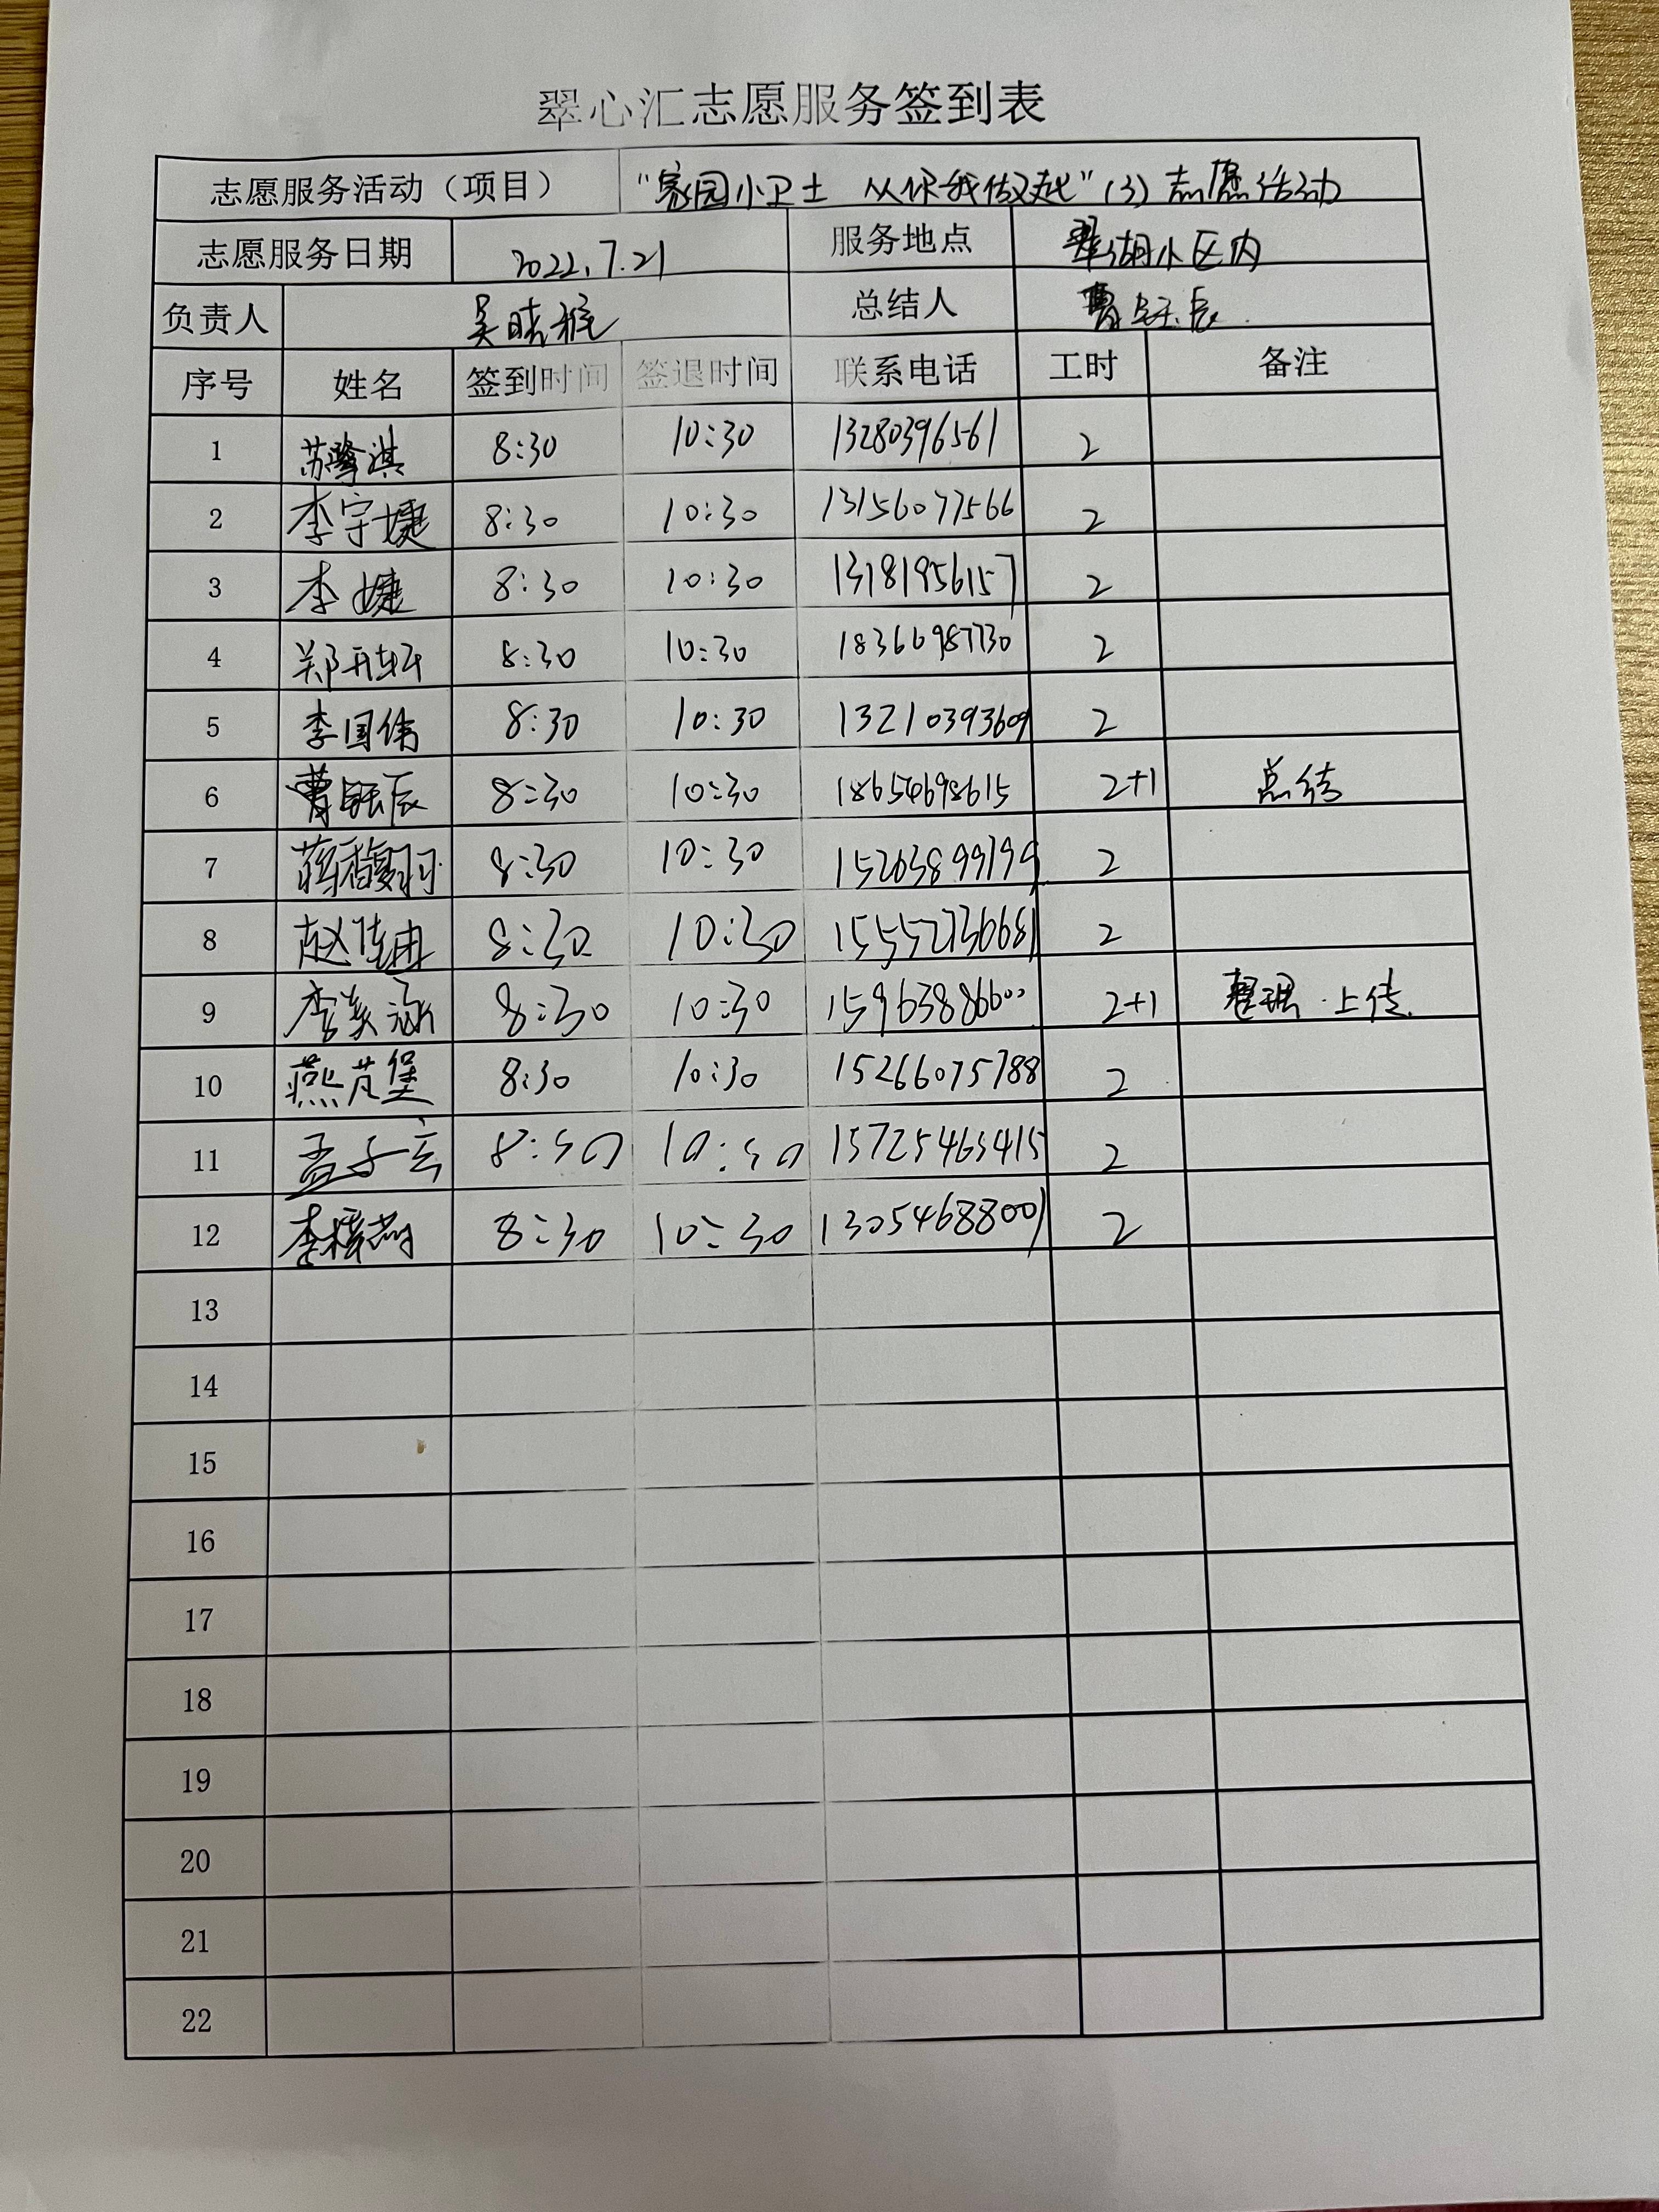 翠心汇志愿服务签到表
志愿服务活动（项目） “家园小卫士 从你我做起”（3）志愿活动
志愿服务日期 2022.7.21 服务地点 翠湖小区内
负责人 吴晓 总结人 曹钰辰
序号 姓名 签到时间 签退时间 联系电话 工时 备注
1 苏 淇 8:30 10:30 13280396561 2
2 李宇婕 8:30 10:30 13156077566 2
3 李婕 8:30 10:30 13181956157 2
4 郑开轩 8:30 10:30 18366987730 2
5 李国伟 8:30 10:30 13210393609 2
6 曹钰辰 8:30 10:30 18654698615 2+1 总结
7 蒋馥羽 8:30 10:30 15263899199 2
8 赵佳冉 8:30 10:30 15552736681 2
9 李美泳 8:30 10:30 15963886600 2+1 整理·上传
10 燕芃堡 8:30 10:30 15266075788 2
11 孟子言 8:30 10:30 15725463415 2
12 李 8:30 10:30 13054688001 2
13
14
15
16
17
18
19
20
21
22